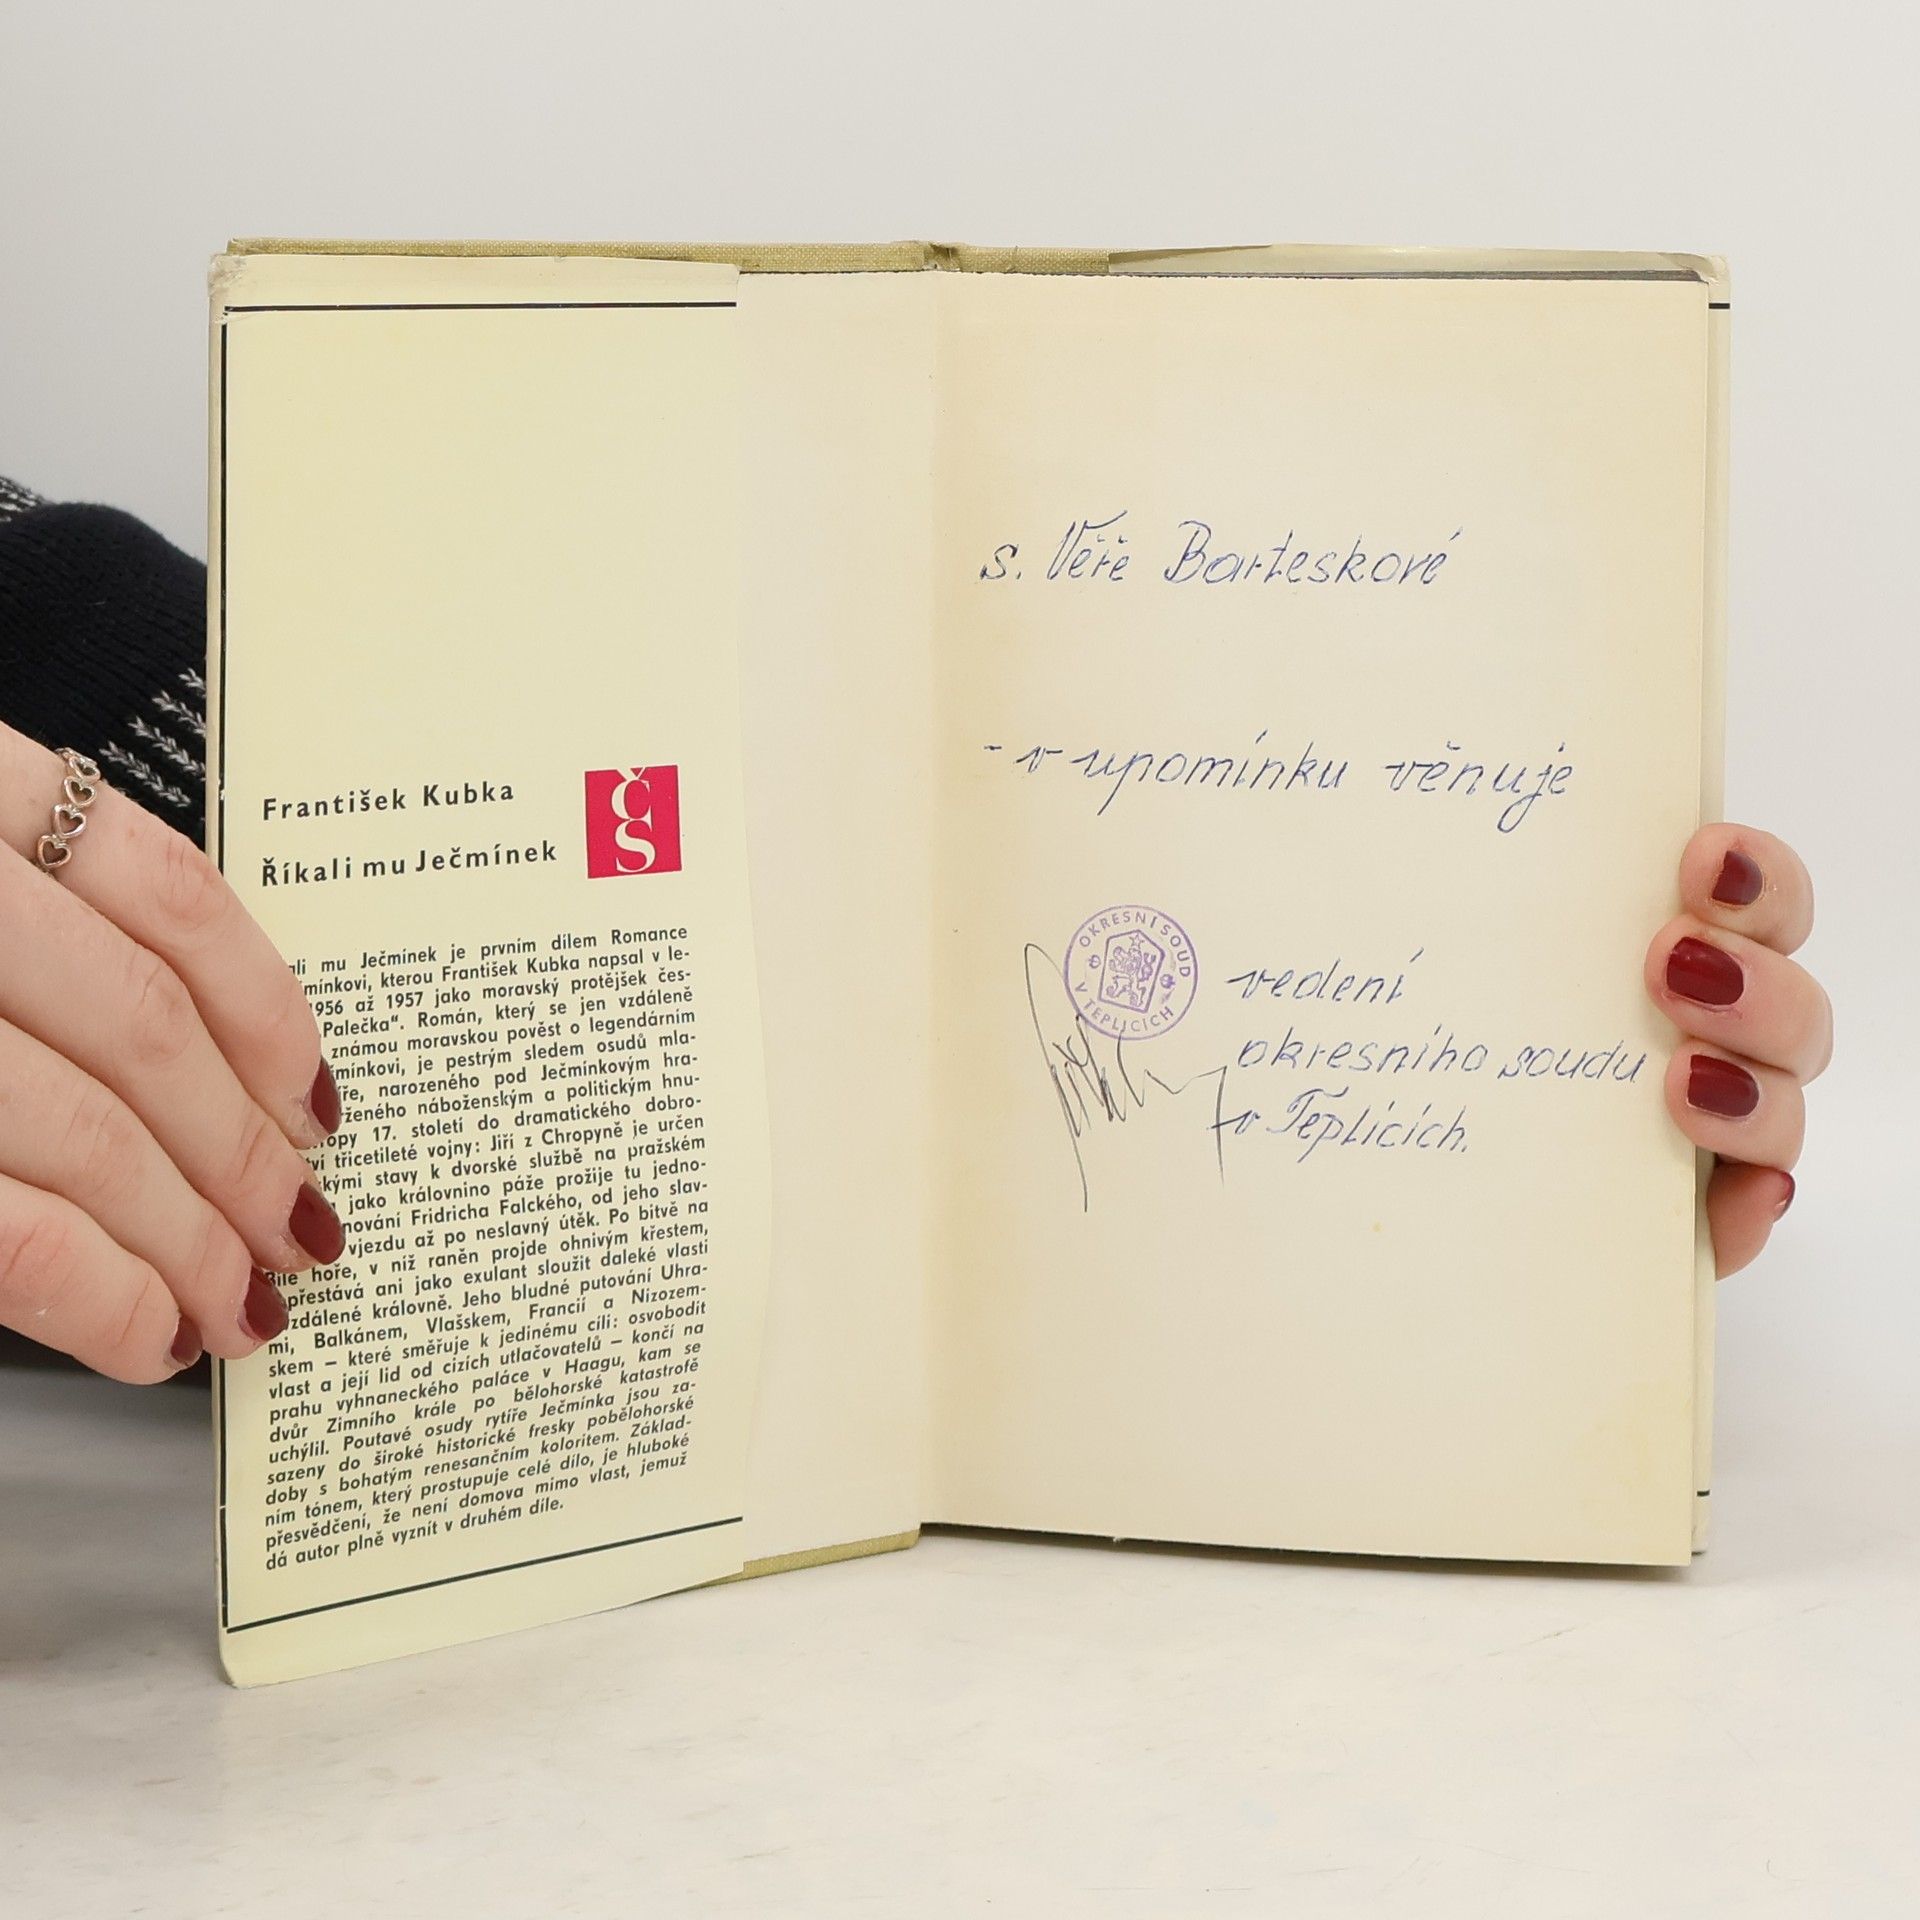 František Kubka
Říkali mu Ječmínek
ČS
ali mu Ječmínek je prvním dílem Romance
mínkovi, kterou František Kubka napsal v le-
1956 až 1957 jako moravský protějšek čes-
Palečka“. Román, který se jen vzdáleně
známou moravskou pověst o legendárním
mínkovi, je pestrým sledem osudů mla-
íře, narozeného pod Ječmínkovým hra-
ženého náboženským a politickým hnu-
ropy 17. století do dramatického dobro-
ví třicetileté vojny: Jiří z Chropyně je určen
kými stavy k dvorské službě na pražském
jako královnino páže prožije tu jedno-
nování Fridricha Falckého, od jeho slav-
vjezdu až po neslavný útěk. Po bitvě na
Bílé hoře, v níž raněn projde ohnivým křestem,
přestává ani jako exulant sloužit daleké vlasti
vzdálené královně. Jeho bludné putování Uhra-
mi, Balkánem, Vlašskem, Francií a Nizozem-
skem – které směřuje k jedinému cíli: osvobodit
vlast a její lid od cizích utlačovatelů – končí na
prahu vyhnaneckého paláce v Haagu, kam se
dvůr Zimního krále po bělohorské katastrofě
uchýlil. Poutavé osudy rytíře Ječmínka jsou za-
sazeny do široké historické fresky pobělohorské
doby s bohatým renesančním koloritem. Základ-
ním tónem, který prostupuje celé dílo, je hluboké
přesvědčení, že není domova mimo vlast, jemuž
dá autor plně vyznít v druhém díle.
s. Věře Barteskové
- v upomínku věnuje
OKRESNÍ SOUD
V TEPLICÍCH
vedení
okresního soudu
v Teplicích.